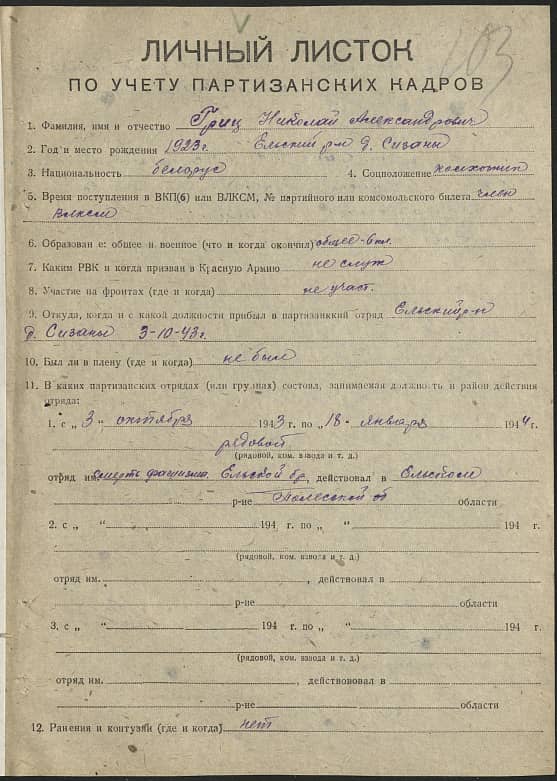 103
ЛИЧНЫЙ ЛИСТОК
ПО УЧЕТУ ПАРТИЗАНСКИХ КАДРОВ
1. Фамилия, имя и отчество Гриц Николай Александрович
2. Год и место рождения 1923 г. Ельский р-н д. Сизаны
3. Национальность белорус 4. Соцположение колхозник
5. Время поступления в ВКП(б) или ВЛКСМ, № партийного или комсомольского билета член
ВЛКСМ
6. Образован е: общее и военное (что и когда окончил) общее - 6 кл.
7. Каким РВК и когда призван в Красную Армию не служ
8. Участие на фронтах (где и когда) не участ.
9. Откуда, когда и с какой должности прибыл в партизанкий отряд Ельский р-н
д. Сизаны 3-10-43 г.
10. Был ли в плену (где и когда) не был
11. В каких партизанских отрядах (или группах) состоял, занимаемая должность и район действия
отряда:
1. с „ 3 “ октября 1943 г. по „ 18 “ января 1944 г.
рядовой
(рядовой, ком. взвода и т. д.)
отряд им. Смерть фашизма Ельской бр, действовал в Ельском
р-не Полесской об области
2. с „ “ 194 г. по „ “ 194 г.
(рядовой, ком. взвода и т. д.)
отряд им. , действовал в
р-не области
3. с „ “ 194 г. по „ “ 194 г.
(рядовой, ком. взвода и т. д.)
отряд им. , действовал в
р-не области
12. Ранения и контузии (где и когда) нет